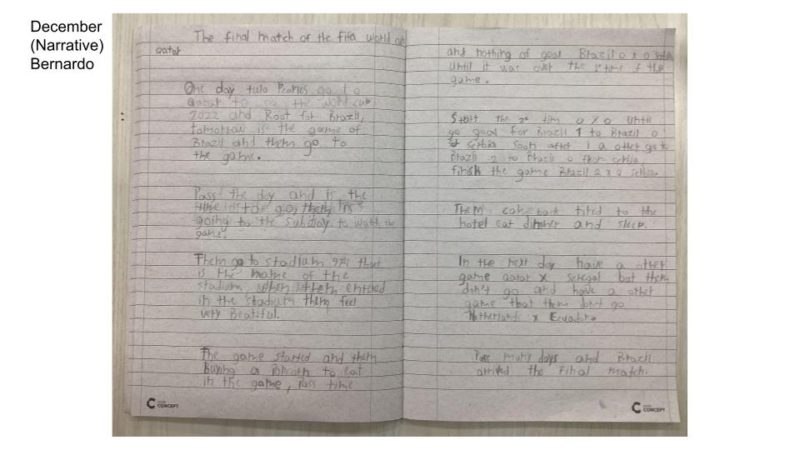 December
(Narrative)
Bernardo
The final match of the fifa world
One day two go to
to the world cup
2022 and Root for Brazil,
tomorrow is the game of
Brazil and them go to
the game.
Pass the day and is the
to go, them
going to the Subway to watch the
game
Them go to stadium 974 that
is the name of the
stadium, when them entred
in the stadium them feel
very Beatiful.
The game started and them
buying a to eat
in the game, pass time
and nothing of goal Brazil 0 x 0
until it was over the time of the
game.
Start the 2° tim 0 x 0 until
go goal for Brazil 1 to Brazil 0
Soon after 1 a other go to
Brazil 2 to Brazil 0 from
finish the game Brazil 2 x 0
Them came back tired to the
hotel eat dinner and sleep.
In the next day have a other
game qatar X Senegal but them
don't go and have a other
game that them don't go
Netherlands x Ecuador.
Pass many days and Brazil
arrived the final match.
CONCEPT
CONCEPT